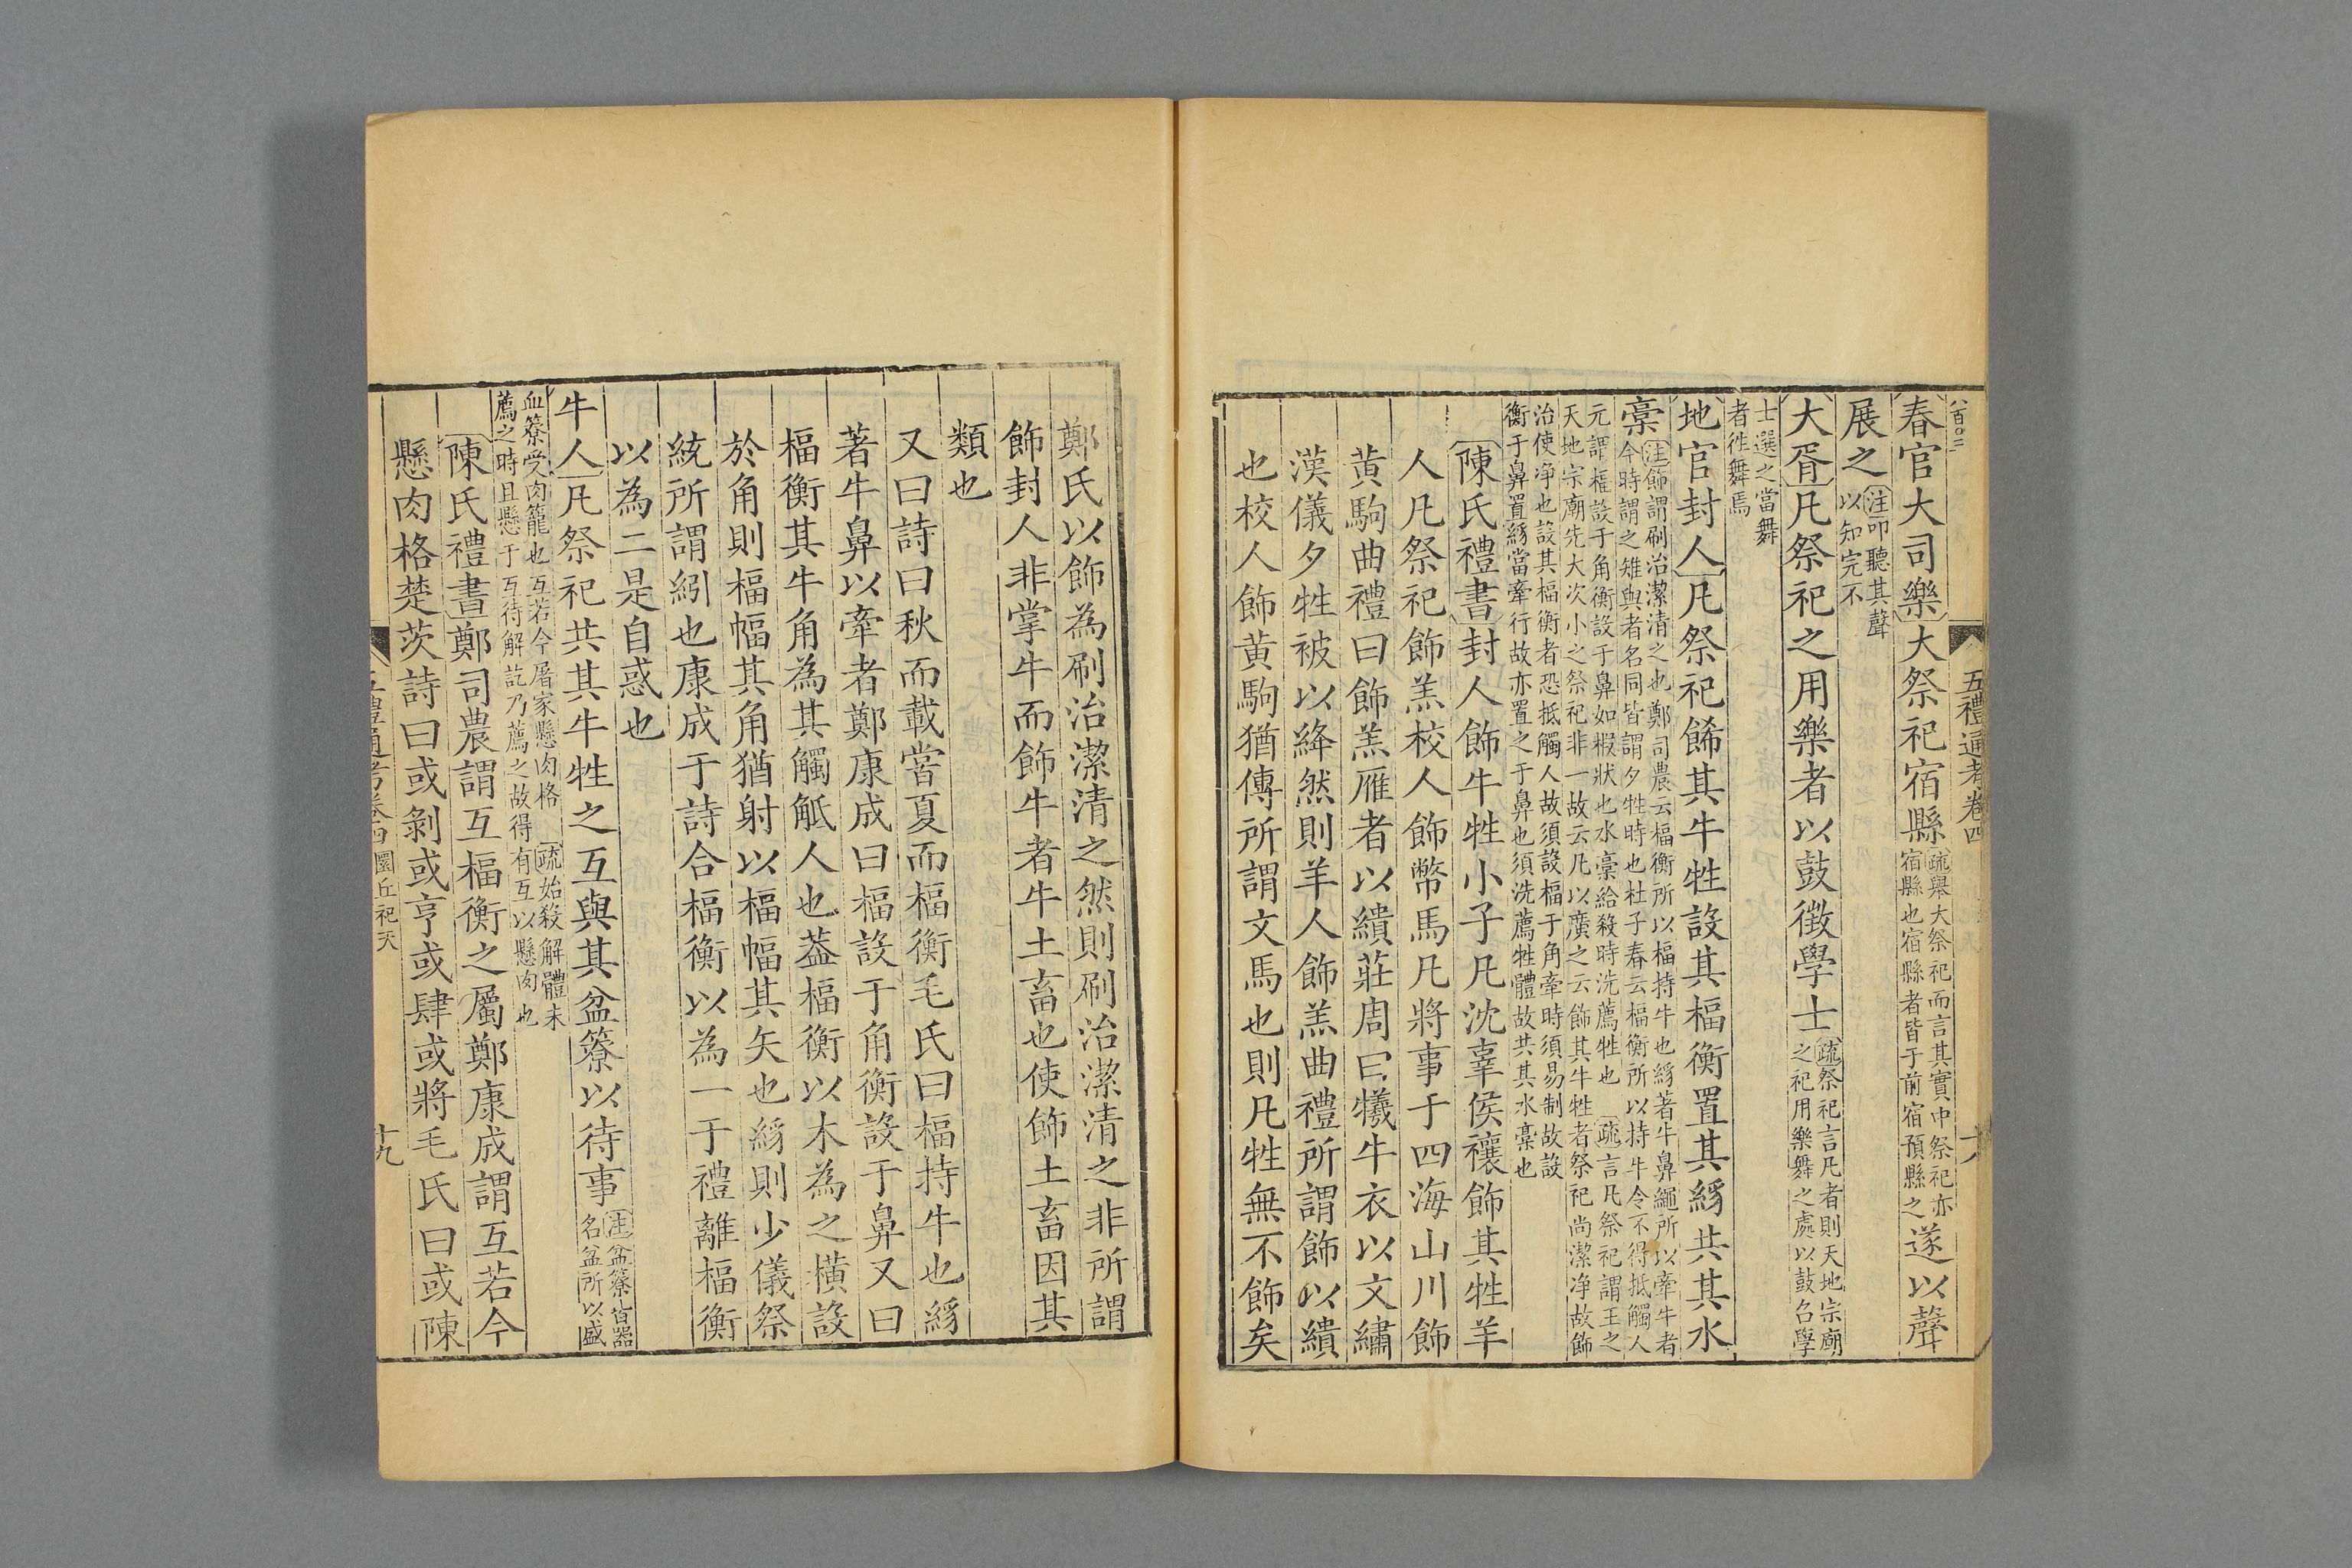 五禮通考卷四
春官大司樂大祭祀宿縣疏舉大祭祀而言其實中祭祀亦宿縣也宿縣者皆于前宿預縣之遂以聲
展之注叩聽其聲以知完不
大胥凡祭祀之用樂者以鼓徵學士疏祭祀言凡者則天地宗廟之祀用樂舞之處以鼓召學
士選之當舞者徃舞焉
地官封人凡祭祀飾其牛牲設其楅衡置其絼共其水
稾注飾謂刷治潔清之也鄭司農云楅衡所以楅持牛也絼著牛鼻繩所以牽牛者今時謂之雉與者名同皆謂夕牲時也杜子春云楅衡所以持牛令不得抵觸人
元謂楅設于角衡設于鼻如椵狀也水稾給殺時洗薦牲也疏言凡祭祀謂王之天地宗廟先大次小之祭祀非一故云凡以廣之云飾其牛牲者祭祀尚潔净故飾
治使净也設其楅衡者恐抵觸人故須設楅于角牽時須易制故設衡于鼻置絼當牽行故亦置之于鼻也須洗薦牲體故共其水稾也
陳氏禮書封人飾牛牲小子凡沈辜侯禳飾其牲羊
人凡祭祀飾羔校人飾幣馬凡將事于四海山川飾
黄駒曲禮曰飾羔雁者以繢莊周曰犧牛衣以文繡
漢儀夕牲被以絳然則羊人飾羔曲禮所謂飾以繢
也校人飾黄駒猶傳所謂文馬也則凡牲無不飾矣
鄭氏以飾為刷治潔清之然則刷治潔清之非所謂
飾封人非掌牛而飾牛者牛土畜也使飾土畜因其
類也
又曰詩曰秋而載嘗夏而楅衡毛氏曰楅持牛也絼
著牛鼻以牽者鄭康成曰楅設于角衡設于鼻又曰
楅衡其牛角為其觸觝人也葢楅衡以木為之橫設
於角則楅幅其角猶射以楅幅其矢也絼則少儀祭
統所謂紖也康成于詩合楅衡以為一于禮離楅衡
以為二是自惑也
牛人凡祭祀共其牛牲之互與其盆簝以待事注盆簝皆器名盆所以盛
血簝受肉籠也互若今屠家懸肉格疏始殺解體未薦之時且懸于互待解訖乃薦之故得有互以懸肉也
陳氏禮書鄭司農謂互楅衡之屬鄭康成謂互若今
懸肉格楚茨詩曰或剝或亨或肆或將毛氏曰或陳
圜丘祀天
十九